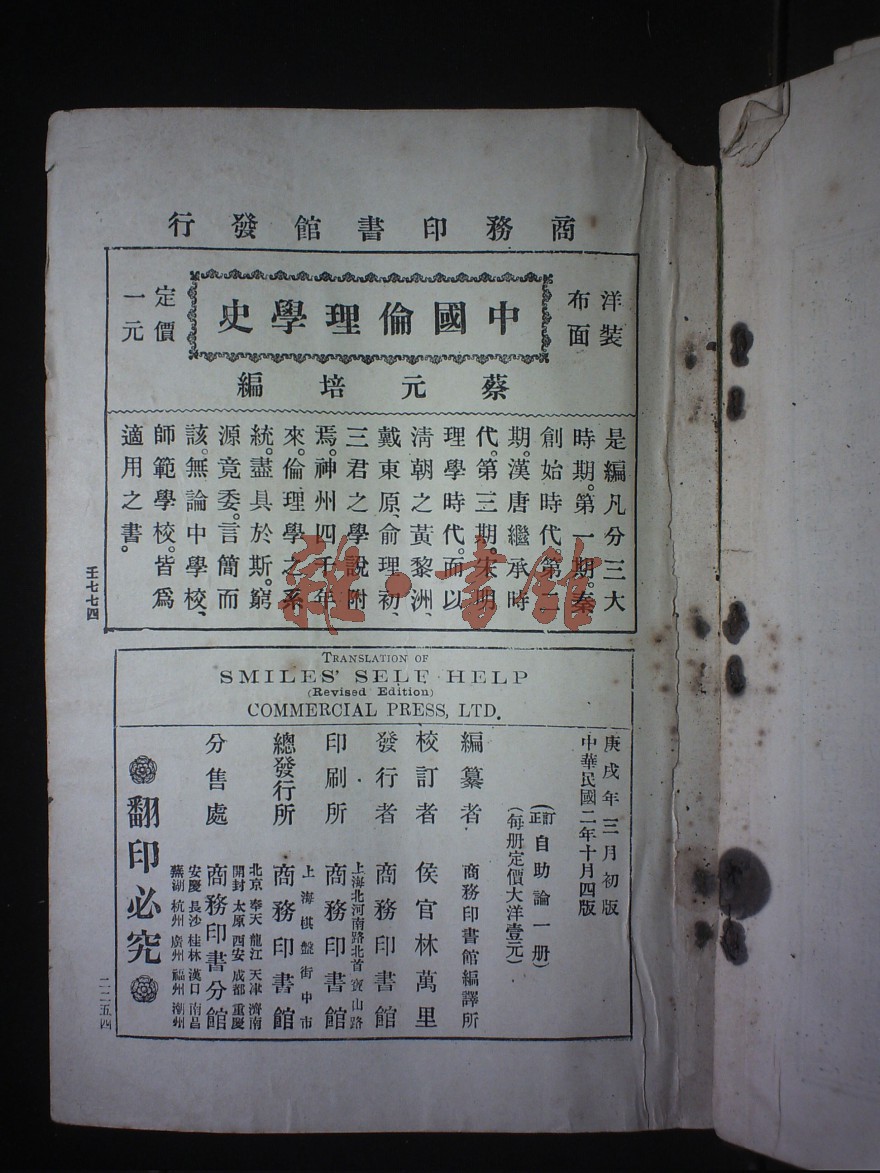 商務印書館發行
洋裝
布面
中國倫理學史
定價
一元
蔡元培編
是編凡分三大
時期。第一期。秦
創始時代第二
期。漢唐繼承時
代。第三期。宋明
理學時代。而以
清朝之黃黎洲、
戴東原、俞理初、
三君之學說附
焉。神州四千年
來。倫理學之系
統。盡具於斯。窮
源竟委。言簡而
該。無論中學校、
師範學校。皆爲
適用之書。
壬七七四
雜·書館
TRANSLATION OF
SMILES' SELF HELP
(Revised Edition)
COMMERCIAL PRESS, LTD.
庚戌年三月初版
中華民國二年十月四版
(訂正自助論一册)
(每册定價大洋壹元)
編纂者 商務印書館編譯所
校訂者 侯官林萬里
發行者 商務印書館
上海北河南路北首寶山路
印刷所 商務印書館
上海棋盤街中市
總發行所 商務印書館
北京 奉天 龍江 天津 濟南
開封 太原 西安 成都 重慶
分售處 商務印書分館
安慶 長沙 桂林 漢口 南昌
蕪湖 杭州 廣州 福州 潮州
翻印必究
二二五四